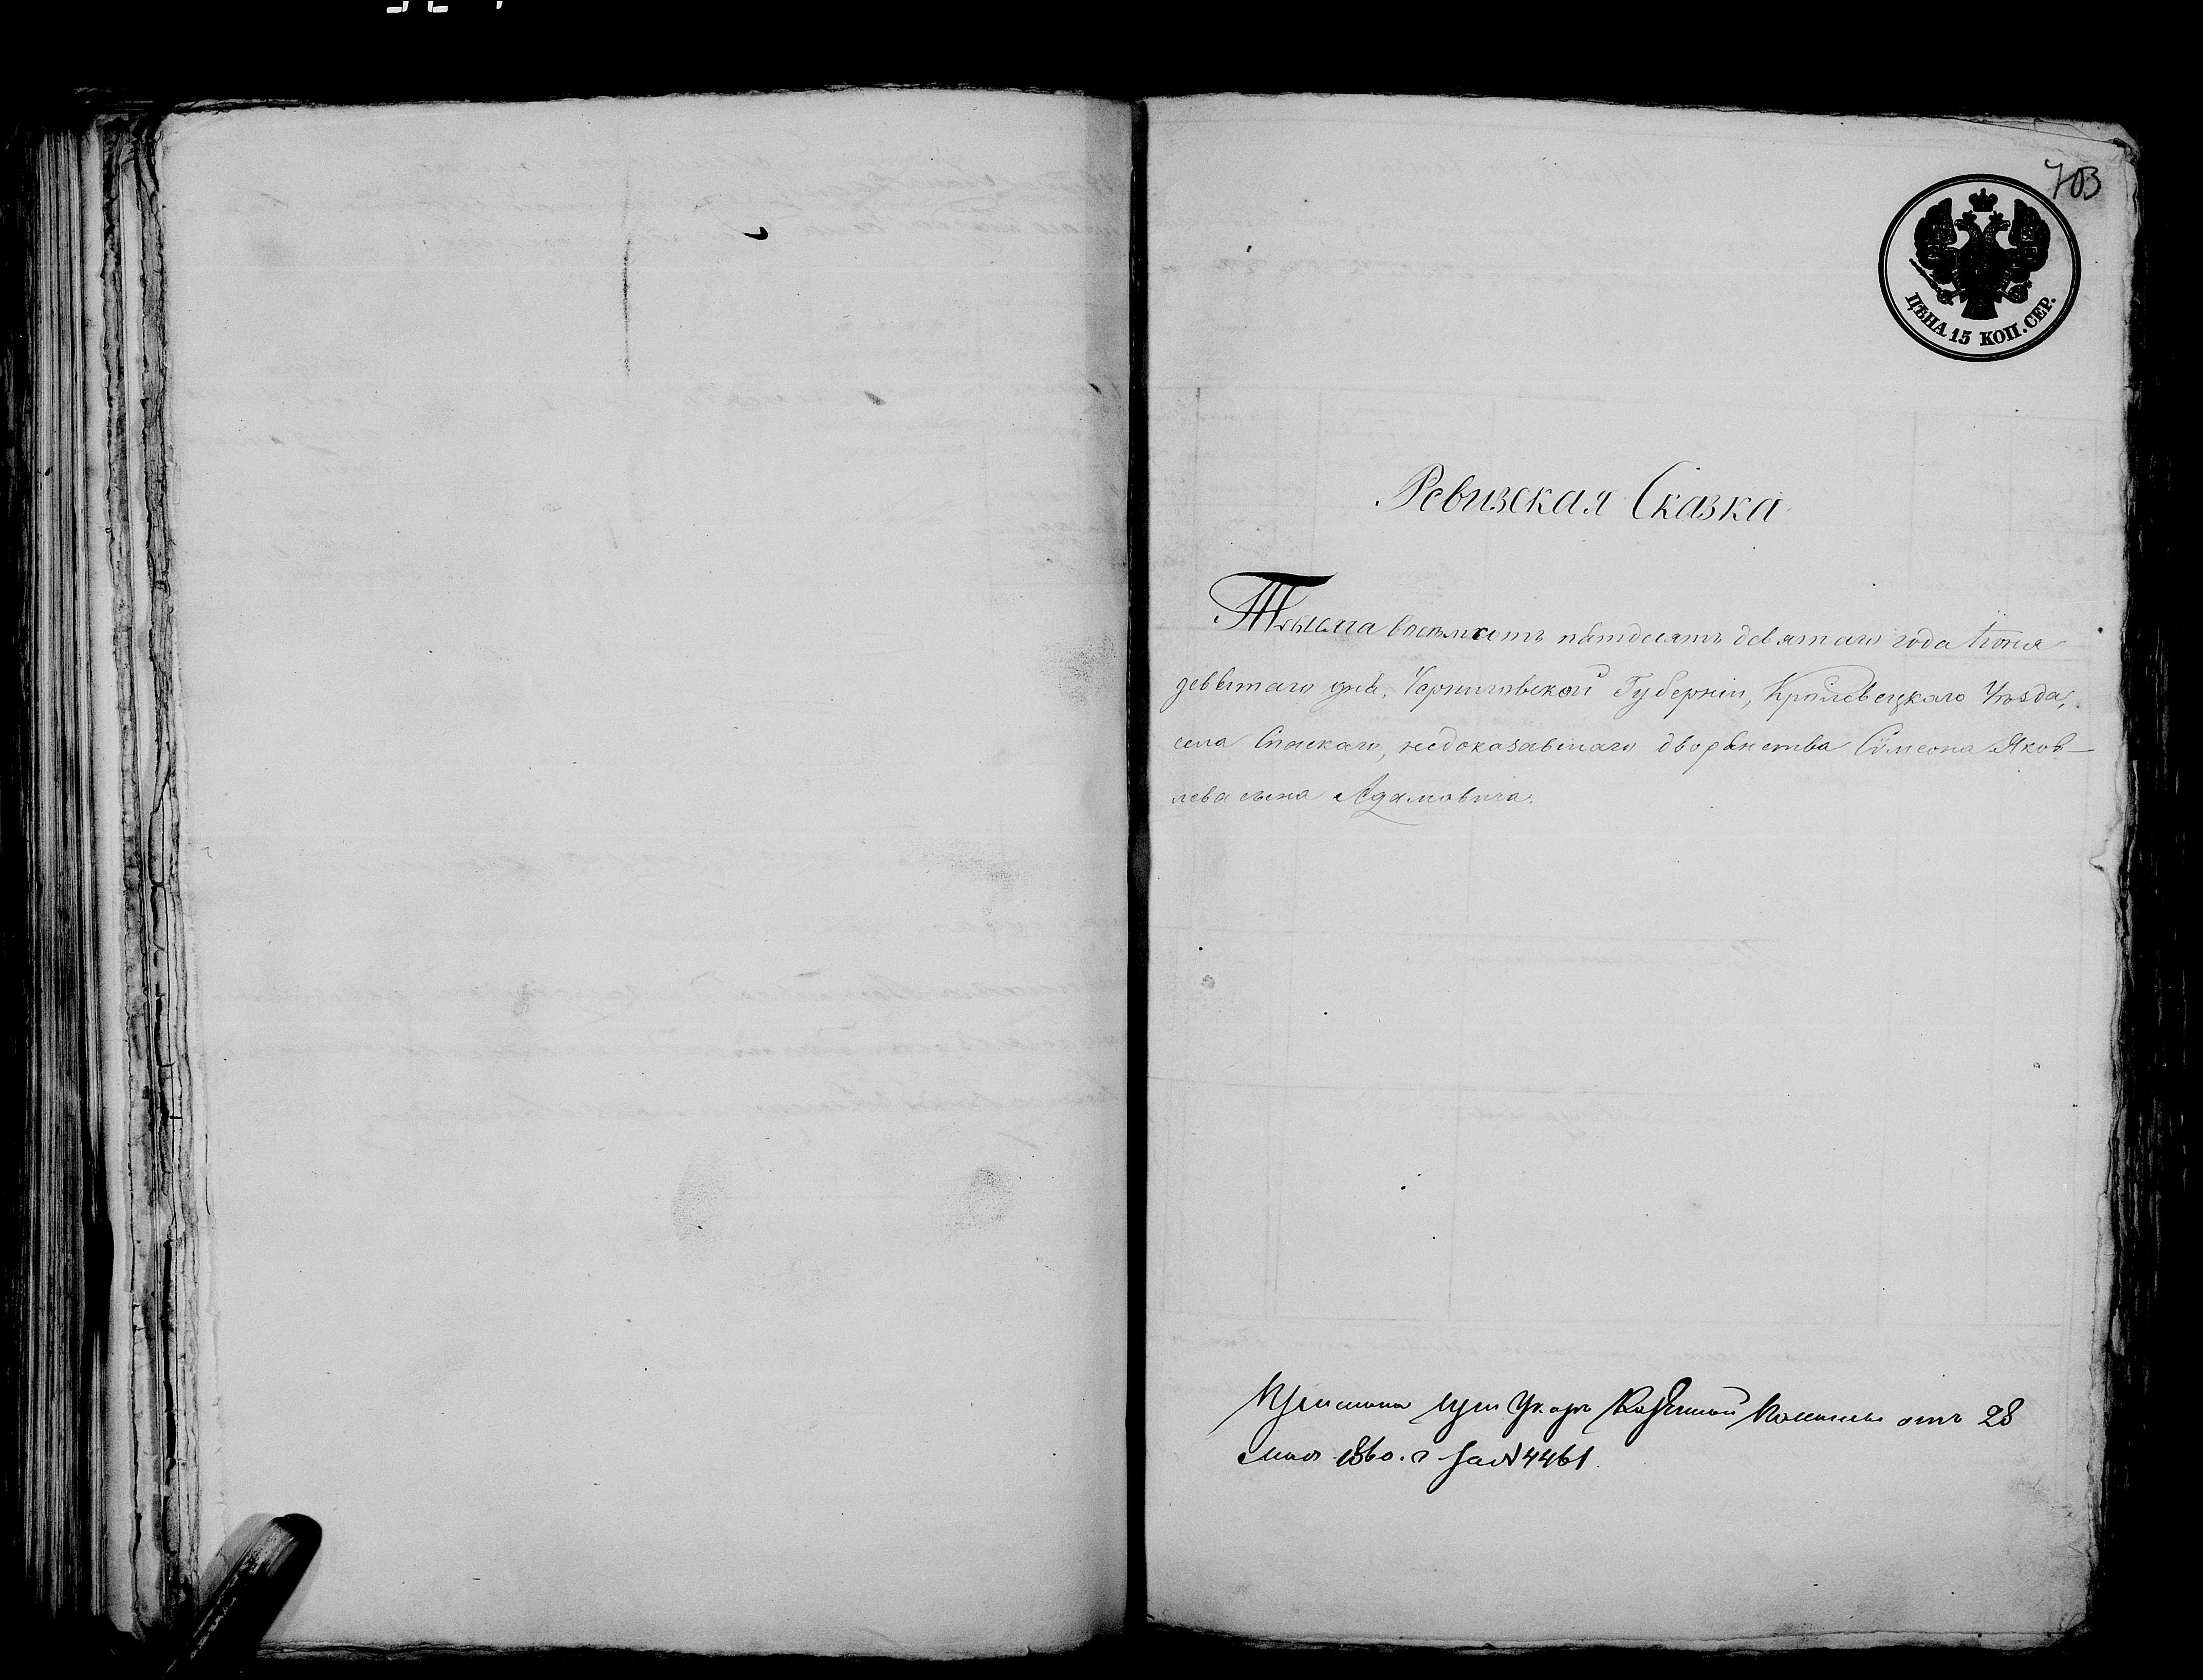 703
ЦѢНА 15 КОП. СЕР.
Ревизская Сказка
Тысяча восемьсотъ пятдесятъ девятаго года Іюня
девятаго дня, Черниговской Губерніи, Кролевецкаго Уѣзда,
села Спаскаго, недоказавшаго дворянства Симеона Яков-
лева сына Адамовича.
при Указѣ Казенной Палаты отъ 28
мая 1860. г за №4461.